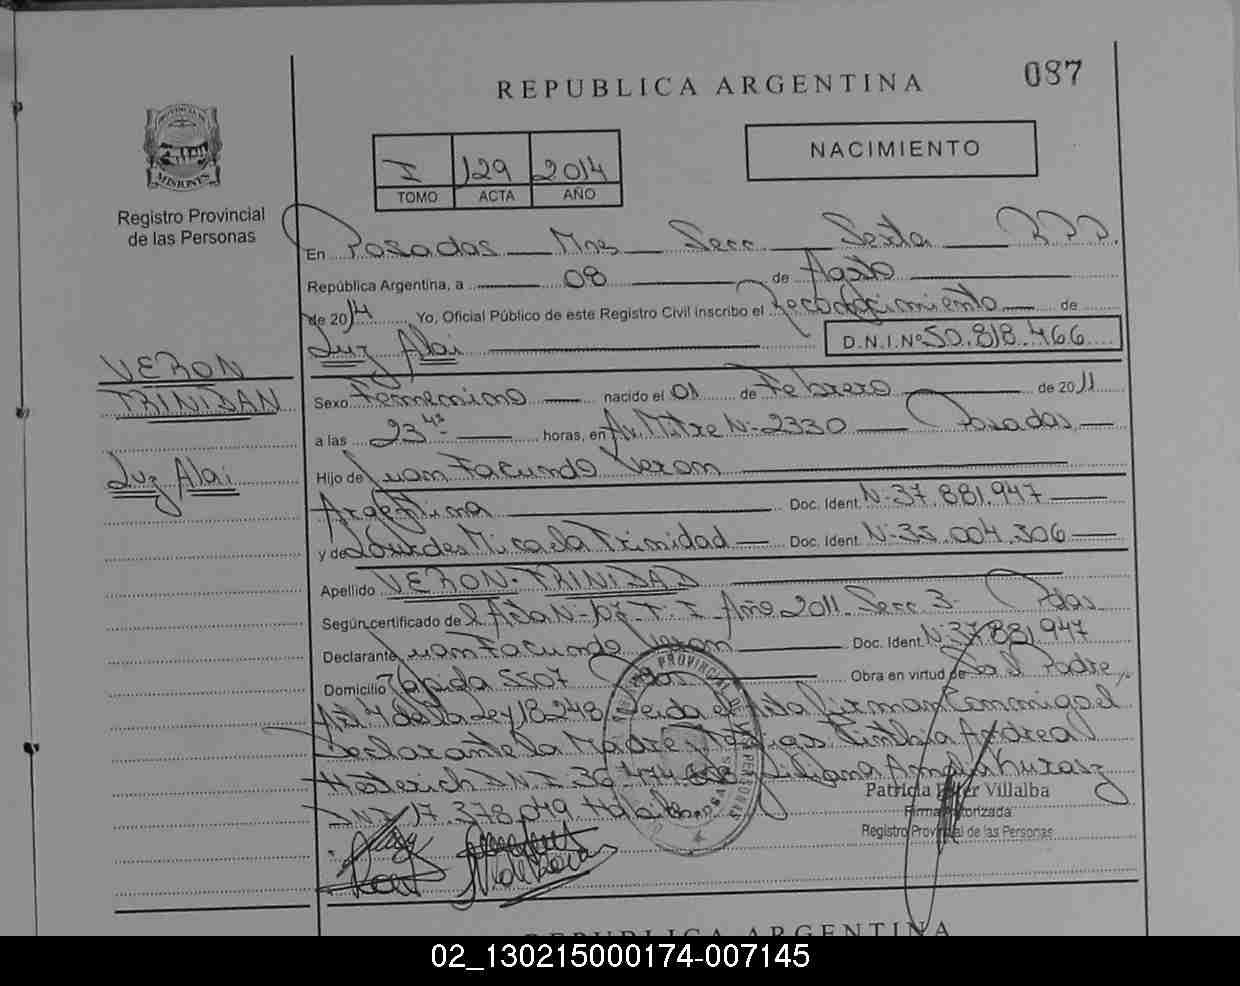 REPUBLICA ARGENTINA
087
PROVINCIA DE
MISIONES
Registro Provincial
de las Personas
I 129 2014
TOMO ACTA AÑO
NACIMIENTO
En Posadas Mnes Secc Sexta
República Argentina, a 08 de Agosto
de 2014 Yo, Oficial Público de este Registro Civil inscribo el Reconocimiento de
Luz Alai D.N.I.Nº 50.818.466
VERON
TRINIDAD
Luz Alai
Sexo Femenino nacido el 01 de Febrero de 2011
a las 23 45 horas, en Av. Mitre N- 2330 Posadas
Hijo de Juan Facundo Veron
Argentina Doc. Ident. N- 37.881.947
y de Lourdes Micaela Trinidad Doc. Ident. N- 35.004.306
Apellido VERON-TRINIDAD
Según certificado de Acta N- T- I Año 2011 Secc 3- Pdas
Declarante Juan Facundo Veron Doc. Ident. N- 37.881.947
Domicilio 5507 Pdas Obra en virtud de Padre
Art. 4 de la Ley 18.248 Leida el Acta Firman Conmigo el
Declarante la Madre Testigos Cinthia Andrea
D.N.I. 36 Liliana
DNI 17.378.049
Patricia Villalba
Firma Autorizada
Registro Provincial de las Personas
REPUBLICA ARGENTINA
02_130215000174-007145